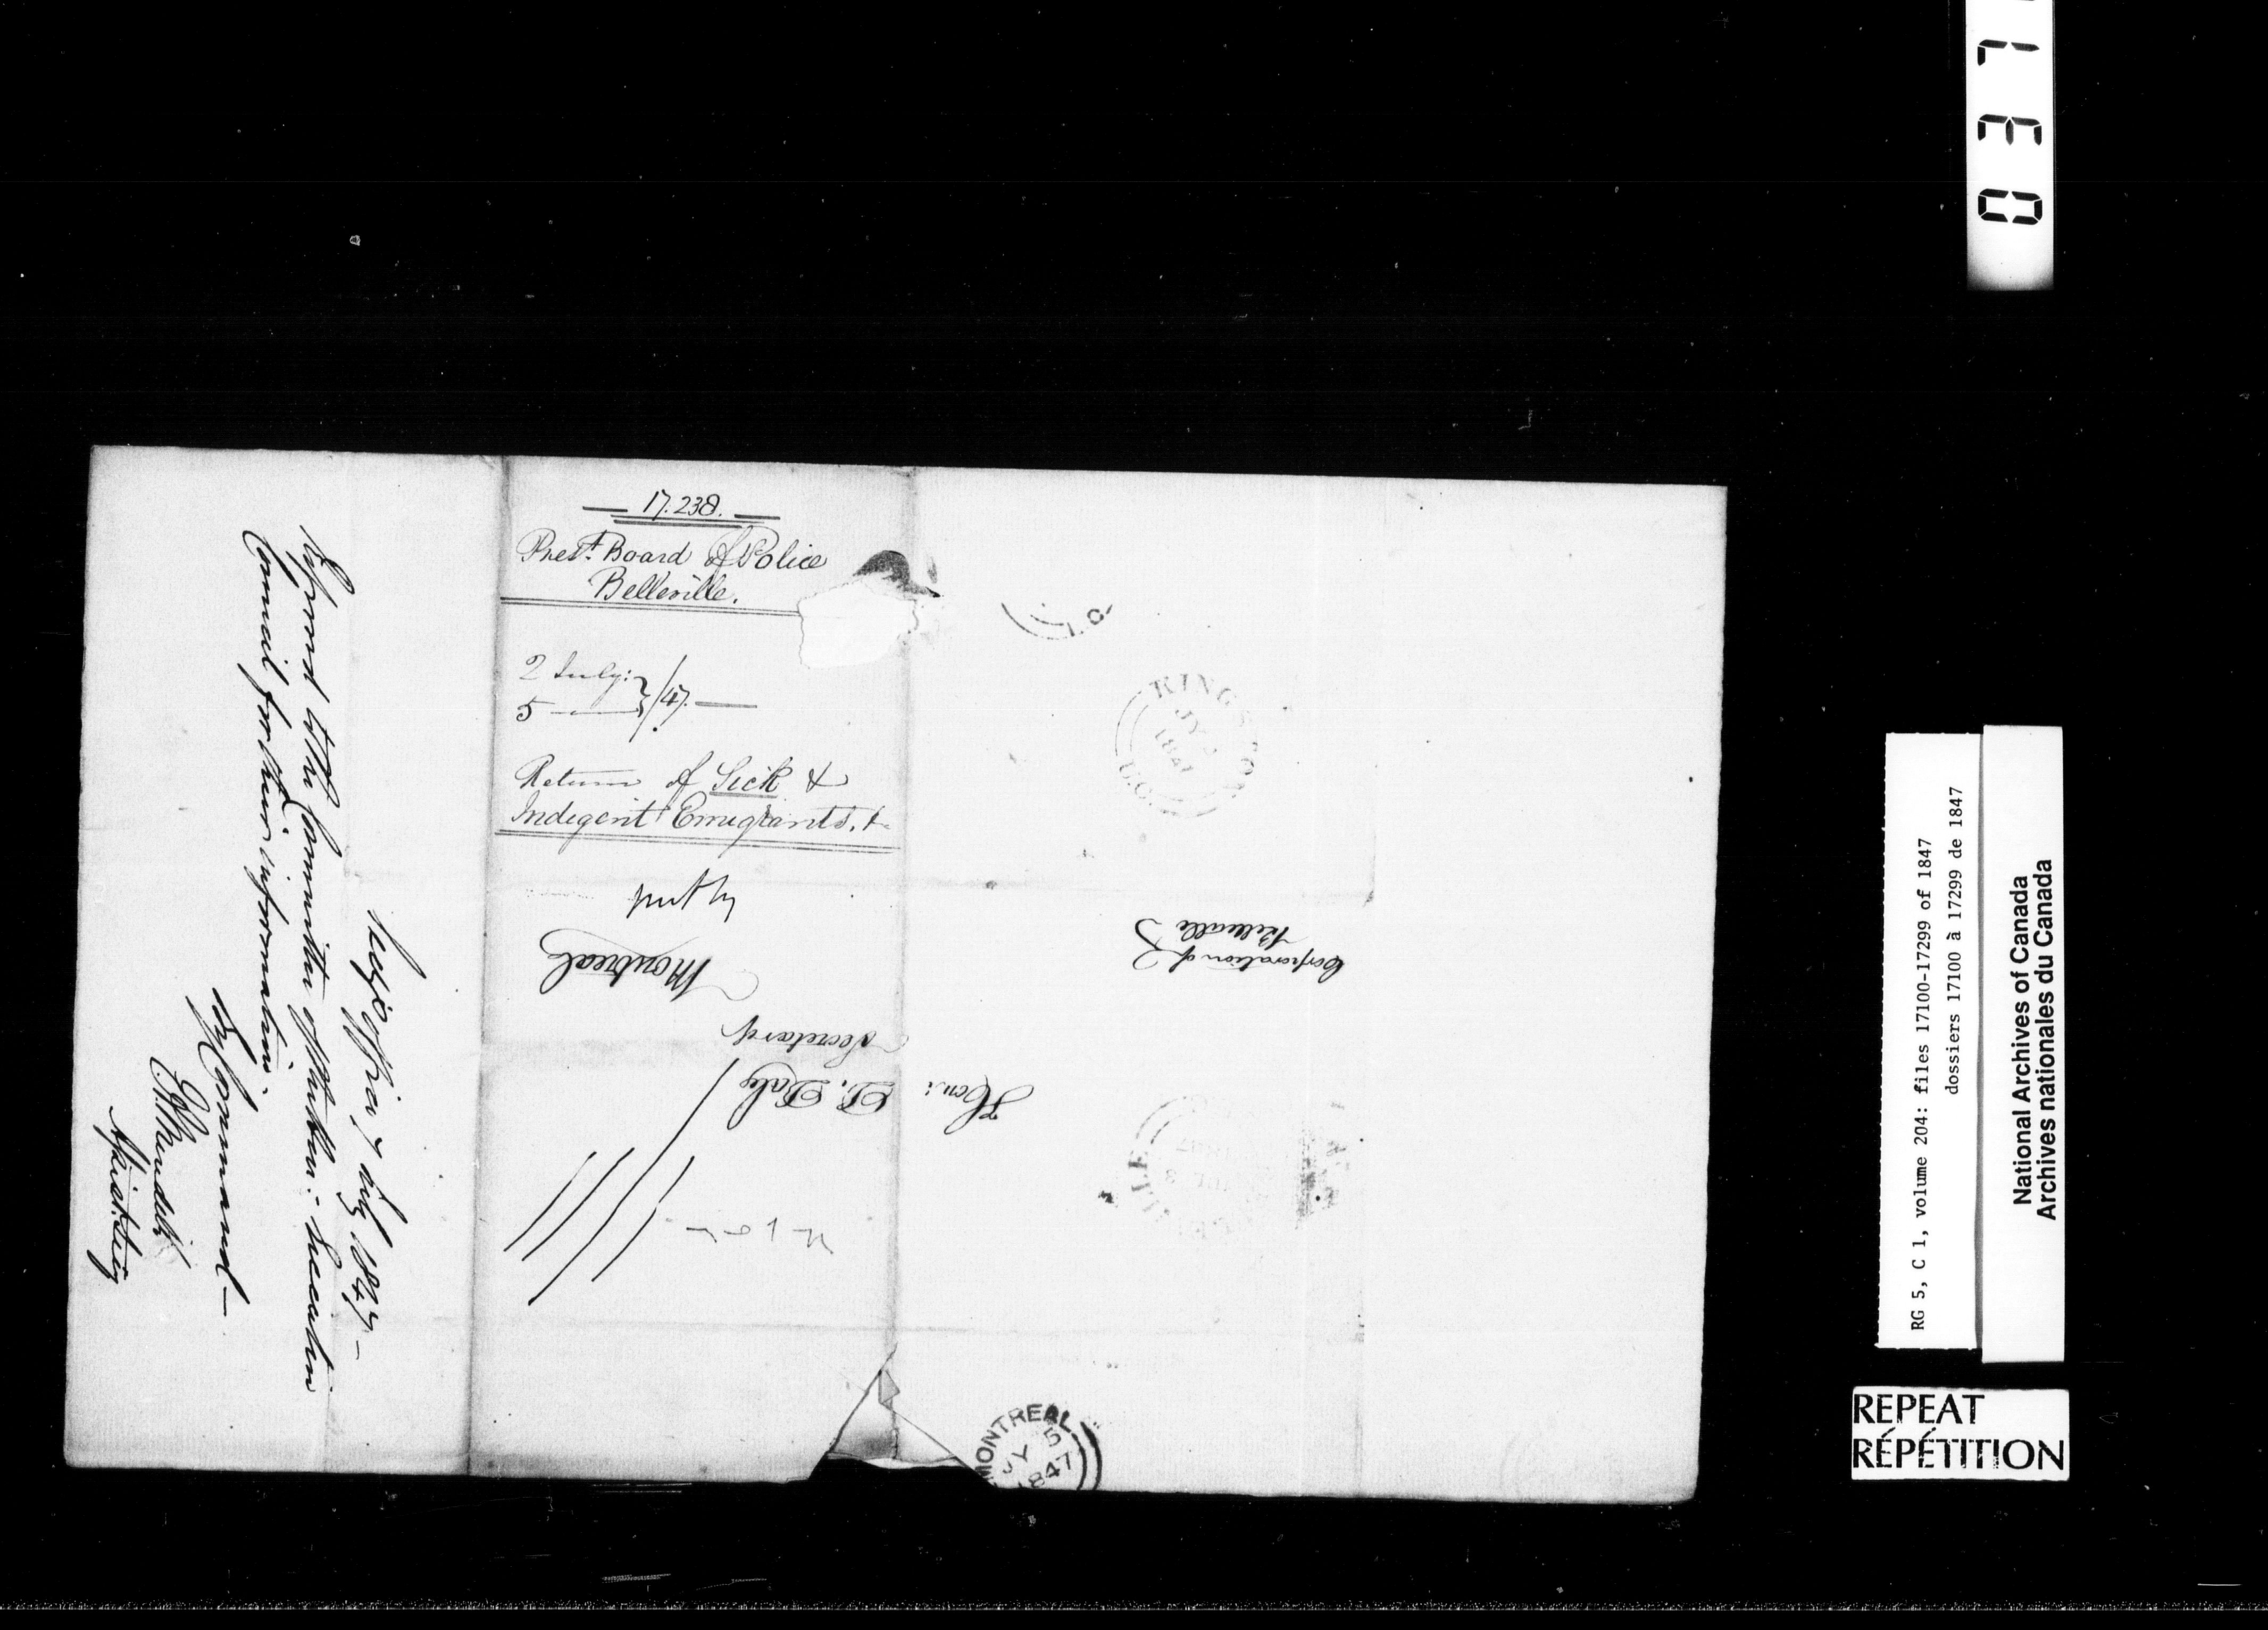 17.238.
Presᵗ. Board of Police
Belleville.
2 July:
5 — } /47. —
Return of Sick &
Indegent Emigrants. &
Montreal
Secretary
Hon: D. Daly
Corporation of
Belleville
Secys Office 7 July 1847 —
Referred to the Committee of the Executive
Council for their information.
By Command —
KINGSTON
JY
1847
U.C.
MONTREAL
JY 5
1847
0 3 7
RG 5, C 1, volume 204: files 17100-17299 of 1847
dossiers 17100 à 17299 de 1847
National Archives of Canada
Archives nationales du Canada
REPEAT
RÉPÉTITION